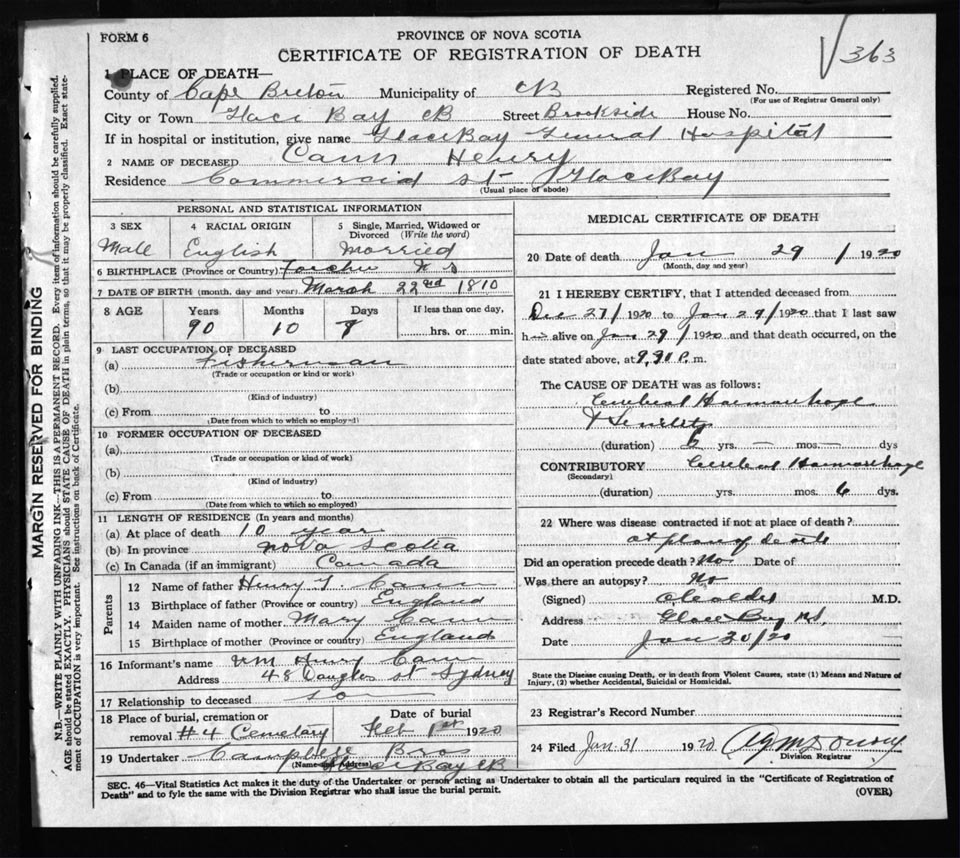 FORM 6
PROVINCE OF NOVA SCOTIA
CERTIFICATE OF REGISTRATION OF DEATH
363
1 PLACE OF DEATH—
County of Cape Breton Municipality of CB Registered No.
(For use of Registrar General only)
City or Town Glace Bay CB Street Brookside House No.
If in hospital or institution, give name Glace Bay General Hospital
2 NAME OF DECEASED Cann Henry
Residence Commercial st Glace Bay
(Usual place of abode)
PERSONAL AND STATISTICAL INFORMATION
3 SEX 4 RACIAL ORIGIN 5 Single, Married, Widowed or Divorced (Write the word)
Male English Married
6 BIRTHPLACE (Province or Country) N S
7 DATE OF BIRTH (month, day and year) March 22nd 1810
8 AGE Years Months Days If less than one day,
90 10 7 hrs. or min.
9 LAST OCCUPATION OF DECEASED
(a) Fisherman
(Trade or occupation or kind or work)
(b)
(Kind of industry)
(c) From to
(Date from which to which so employed)
10 FORMER OCCUPATION OF DECEASED
(a)
(Trade or occupation or kind of work)
(b)
(Kind of industry)
(c) From to
(Date from which to which so employed)
11 LENGTH OF RESIDENCE (In years and months)
(a) At place of death 10 year
(b) In province Nova Scotia
(c) In Canada (if an immigrant) Canada
Parents
12 Name of father Henry T Cann
13 Birthplace of father (Province or country) England
14 Maiden name of mother Mary Cann
15 Birthplace of mother (Province or country) England
16 Informant's name Wm Henry Cann
Address 48 Douglas st Sydney
17 Relationship to deceased son
18 Place of burial, cremation or removal #4 Cemetary
Date of burial Feb 1st 1920
19 Undertaker Campbell Bros
(Name and Address) Glace Bay CB
MEDICAL CERTIFICATE OF DEATH
20 Date of death Jan 29 / 1920
(Month, day and year)
21 I HEREBY CERTIFY, that I attended deceased from
Dec 27/1920 to Jan 29/1920 that I last saw
h alive on Jan 29/1920 and that death occurred, on the
date stated above, at P.m.
The CAUSE OF DEATH was as follows:
Cerebral Haemorrhage
& Senility
(duration) yrs. — mos. — dys
CONTRIBUTORY Cerebral Haemorrhage
(Secondary)
(duration) yrs. mos. 6 dys.
22 Where was disease contracted if not at place of death?
at place of death
Did an operation precede death? No Date of
Was there an autopsy? No
(Signed) M.D.
Address Glace Bay NS
Date Jan 30/20
State the Disease causing Death, or in death from Violent Causes, state (1) Means and Nature of Injury, (2) whether Accidental, Suicidal or Homicidal.
23 Registrar's Record Number
24 Filed Jan 31 1920
Division Registrar
SEC. 46—Vital Statistics Act makes it the duty of the Undertaker or person acting as Undertaker to obtain all the particulars required in the "Certificate of Registration of
Death" and to fyle the same with the Division Registrar who shall issue the burial permit.
(OVER)
MARGIN RESERVED FOR BINDING
N.B.—WRITE PLAINLY WITH UNFADING INK—THIS IS A PERMANENT RECORD. Every item of information should be carefully supplied.
AGE should be stated EXACTLY. PHYSICIANS should STATE CAUSE OF DEATH in plain terms, so that it may be properly classified. Exact state-
ment of OCCUPATION is very important. See instructions on back of Certificate.